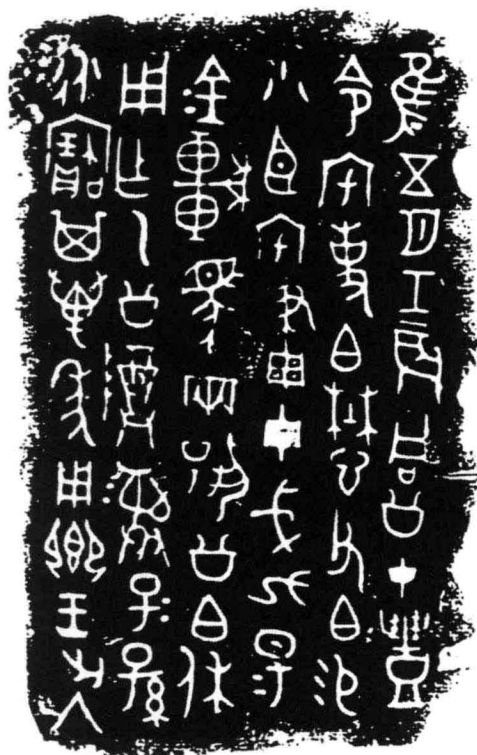 隹五月壬辰同公才豐
令宅事白懋父白易
小臣宅畫毌戈九昜
金車馬兩揚公白休
用乍乙公尊彝子=孫
永寶其萬年用鄉王出入